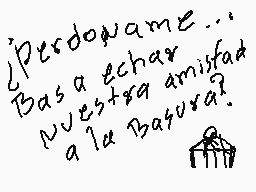 ¿Perdoname...
Bas a echar
nuestra amistad
a la Basura?